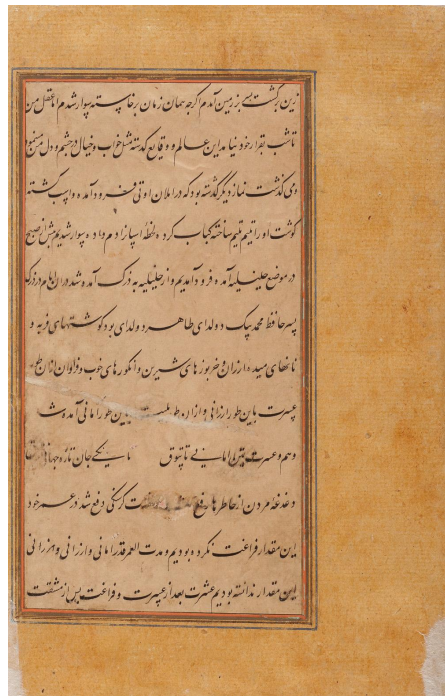 زین برکشت بسر بر زمین آمدم اگرچه همان زمان برخاسته سوار شدم اما عقل من
تا شب بقرار خود نیامد این عالم و وقایع گذشته مثل خواب و خیال در چشم و دل من
می گذشت نماز دیگر گذشته بود که در املان اوتی فرود آمده و اسب کشته
گوشت او را تیم تیم ساخته کباب کرده لحظه اسپانرا دم داده سوار شدیم پیش از صبح
در موضع خلیلیه آمده فرود آمدیم و از خلیلیه به دزک آمده شد در ایام در دزک
پسر حافظ محمد بیک دولدای طاهر دولدای بود گوشتهای فربه و
نانهای میده ارزان و خربوزهای شیرین و انگورهای خوب و فراوان از آن طور
عسرت باین طور ارزانی و از آن طور بلیت باین طور امانی آمده شد
وهم و عسرت امانی یافتیق یکی جان تازه جهانی
دغدغه مردن از خاطرها رفع شد کرسنکی دفع شد در عمر خود
این مقدار فراغت نکرده بودیم و مدت العمر قدر امانی و ارزانی
این مقدار ندانسته بودیم عشرت بعد از عسرت و فراغت پس از مشقت